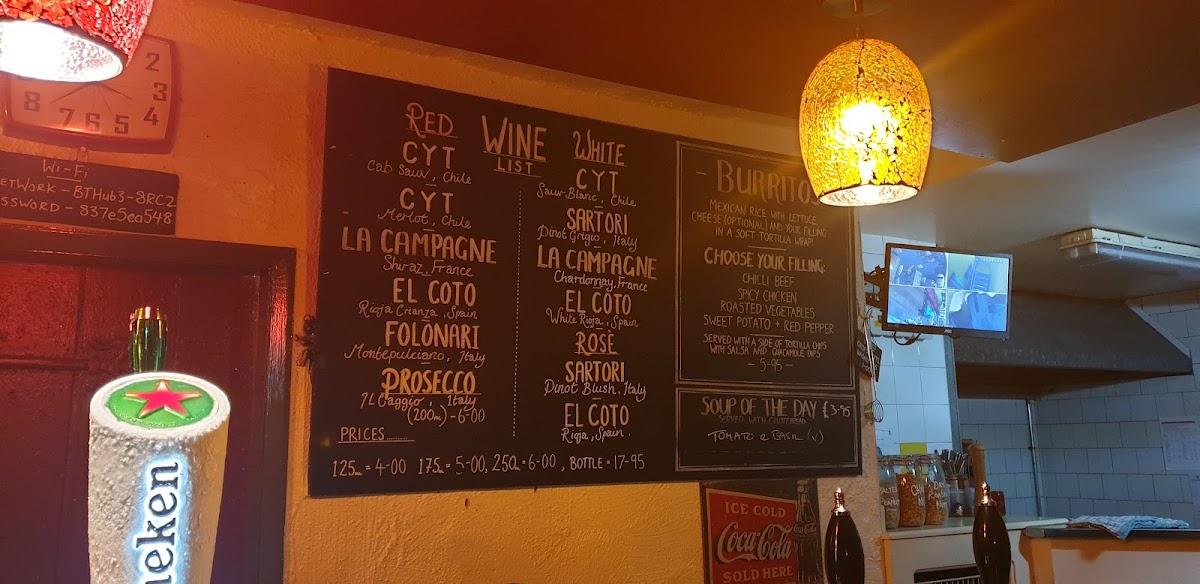 2
3
4
5
6
7
8
Wi-Fi
NETWORK - BTHub3-8RC2
PASSWORD - 837e5ea548
WINE
LIST
RED
CYT
Cab Sauv, Chile
CYT
Merlot, Chile
LA CAMPAGNE
Shiraz, France
EL COTO
Rioja Crianza, Spain
FOLONARI
Montepulciano, Italy
PROSECCO
Il Caggio, Italy
(200ml) - 6-00
WHITE
CYT
Sauv-Blanc, Chile
SARTORI
Pinot Grigio, Italy
LA CAMPAGNE
Chardonnay, France
EL COTO
White Rioja, Spain
ROSÉ
SARTORI
Pinot Blush, Italy
EL COTO
Rioja, Spain.
PRICES........
125ml = 4-00 175ml = 5-00, 250ml = 6-00, BOTTLE = 17-95
- BURRITOS
MEXICAN RICE WITH LETTUCE,
CHEESE (OPTIONAL) AND YOUR FILLING
IN A SOFT TORTILLA WRAP!
CHOOSE YOUR FILLING:
CHILLI BEEF
SPICY CHICKEN
ROASTED VEGETABLES
SWEET POTATO + RED PEPPER
SERVED WITH A SIDE OF TORTILLA CHIPS
WITH SALSA AND GUACAMOLE DIPS
- 5-95 -
SOUP OF THE DAY £3-95
SERVED WITH CRUSTY BREAD
TOMATO & BASIL (V)
ICE COLD
Coca-Cola
SOLD HERE
neken